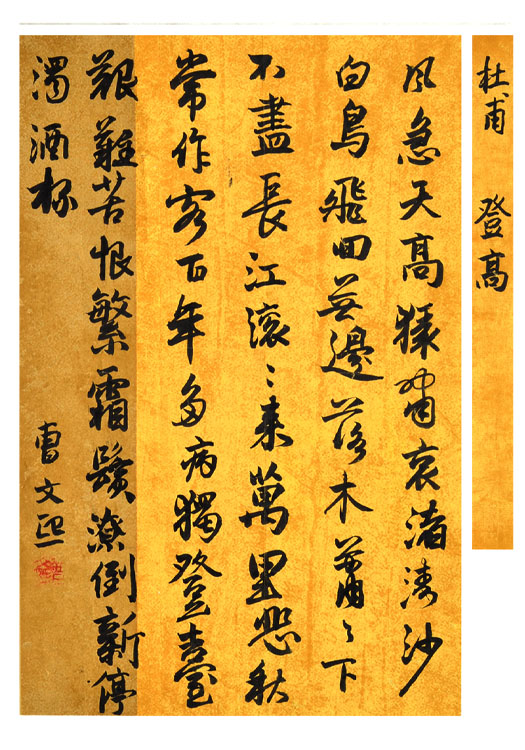 杜甫 登髙
風急天髙猿嘯哀渚清沙
白鳥飛回無邊落木蕭〻下
不盡長江滚〻来萬里悲秋
常作客百年多病獨登臺
艱難苦恨繁霜鬢潦倒新停
濁酒杯
曹文熙